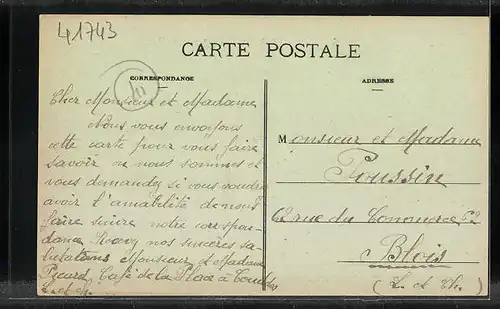 41743
CARTE POSTALE
CORRESPONDANCE
ADRESSE
Cher Monsieur et Madame
Nous vous envoyons
cette carte pour vous faire
savoir ou nous sommes et
vous demander si vous voudrez
avoir l'amabilité de nous
faire suivre notre correspon-
dance Recevez nos sincères sa-
lutations Monsieur et Madame
Picard Café de la Place à
L. et Ch.
Monsieur et Madame
Poussin
62 rue du Commerce 62
Blois
(L. et Ch.)